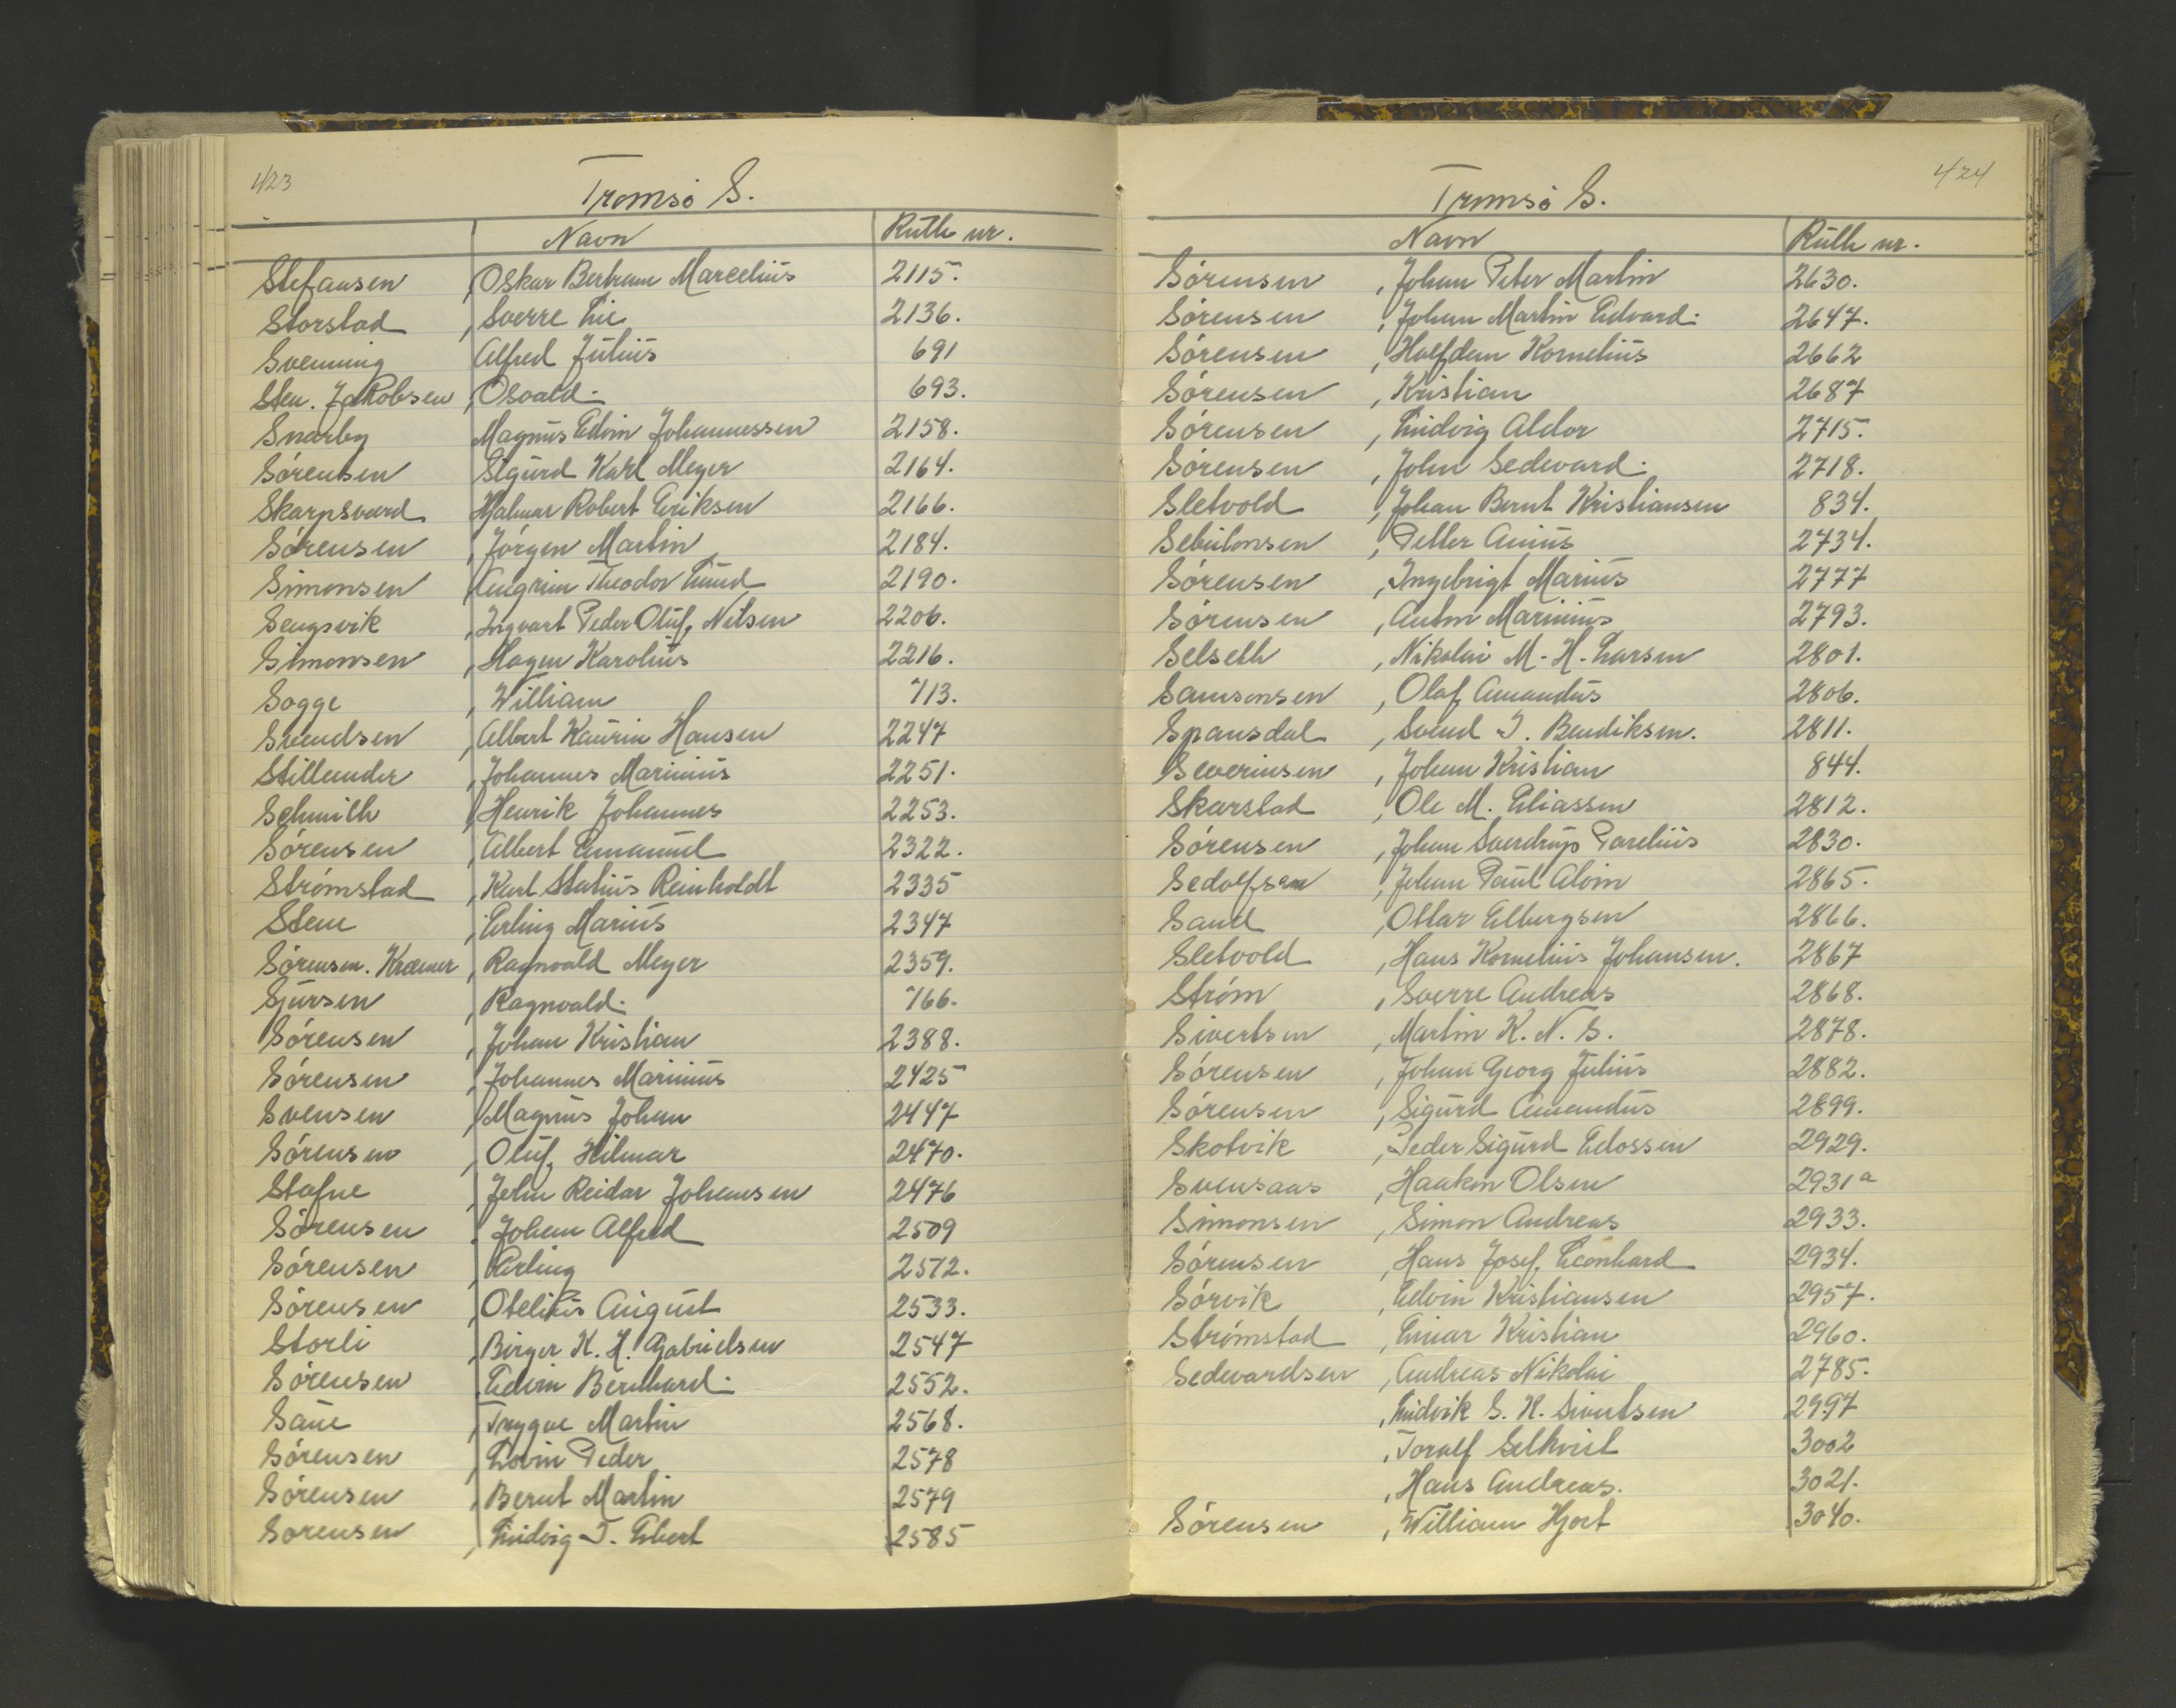 423
Tromsö S.
Navn Rulle nr.
Stefansen , Oskar Bertram Marcelius 2115.
Storstad , Sverre Lie 2136.
Svenning Alfred Julius 691
Sten. Jakobsen , Osvald. 693.
Snarby Magnus Edvin Johannessen 2158.
Sörensen Sigurd Karl Meyer 2164.
Skarpsvard Hjalmar Robert Eriksen 2166.
Sörensen , Jörgen Martin 2184.
Simonsen , Angrim Theodor Lund 2190.
Sengsvik , Ingvart Peder Oluf Nilsen 2206.
Simonsen , Hagen Karolius 2216.
Sogge , William 713.
Svendsen , Albert Kaurin Hansen 2247
Stillander , Johannes Marinius 2251.
Schmith , Henrik Johannes 2253.
Sörensen , Albert Emanuel 2322.
Strömstad , Karl Statius Reinholdt 2335
Stene , Erling Marius 2347
Sörensen. Kræmer , Ragnvald Meyer 2359.
Sjursen , Ragnvald. 766.
Sörensen , Johan Kristian 2388.
Sörensen , Johannes Marinius 2425
Svensen , Magnus Johan 2447
Sörensen , Oluf Hilmar 2470.
Stafne , John Reidar Johansen 2476
Sörensen , Johan Alfred 2509
Sörensen , Erling 2512.
Sörensen , Otelius August 2533.
Storli , Birger K. H. Gabrielsen 2547
Sörensen , Edvin Bernhard. 2552.
Saue , Trygve Martin 2568.
Sörensen , Lovin Peder 2578
Sörensen , Bernt Martin 2579
Sorensen , Ludvig I. Ebert 2585
424
Tromsö S.
Navn Rulle nr.
Sörensen , Johan Peter Martin 2630.
Sörensen , Johan Martin Edvard. 2647.
Sörensen , Halfdan Kornelius 2662
Sörensen , Kristian 2687
Sörensen , Ludvig Aldor 2715.
Sörensen , John Sedevard. 2718.
Sletvold , Johan Bernt Kristiansen 834.
Sebulonsen , Petter Anius 2734.
Sörensen , Ingebrigt Marius 2777
Sörensen , Anton Marinius 2793.
Selseth , Nikolai M. H. Larsen 2801.
Samsonsen , Olaf Amandus 2806.
Spansdal , Svend I. Bendiksen. 2811.
Severinsen , Johan Kristian 844.
Skarstad , Ole M. Eliassen 2812.
Sörensen , Johan Sverdrup Parelius 2830.
Sedolfsen , Johan Paul Alvin 2865.
Sand , Ottar Elbergsen 2866.
Sletvold , Hans Kornelius Johansen. 2867
Ström , Sverre Andreas 2868.
Sivertsen , Martin K. N. S. 2878.
Sörensen , Johan Georg Julius 2882.
Sörensen , Sigurd Amandus 2899.
Skotvik , Peder Sigurd Edossen 2929.
Svensaas , Haakon Olsen 2931 a
Simonsen , Simon Andreas 2933.
Sörensen , Hans Josef Leonhard 2934.
Sörvik , Edvin Kristiansen 2957.
Strömstad , Einar Kristian 2960.
Sedevardsen , Andreas Nikolai 2785.
, Ludvik S. H. Sivertsen 2997
, Toralf Selkvist 3002
, Hans Andreas. 3021.
Sörensen , William Hjort 3040.